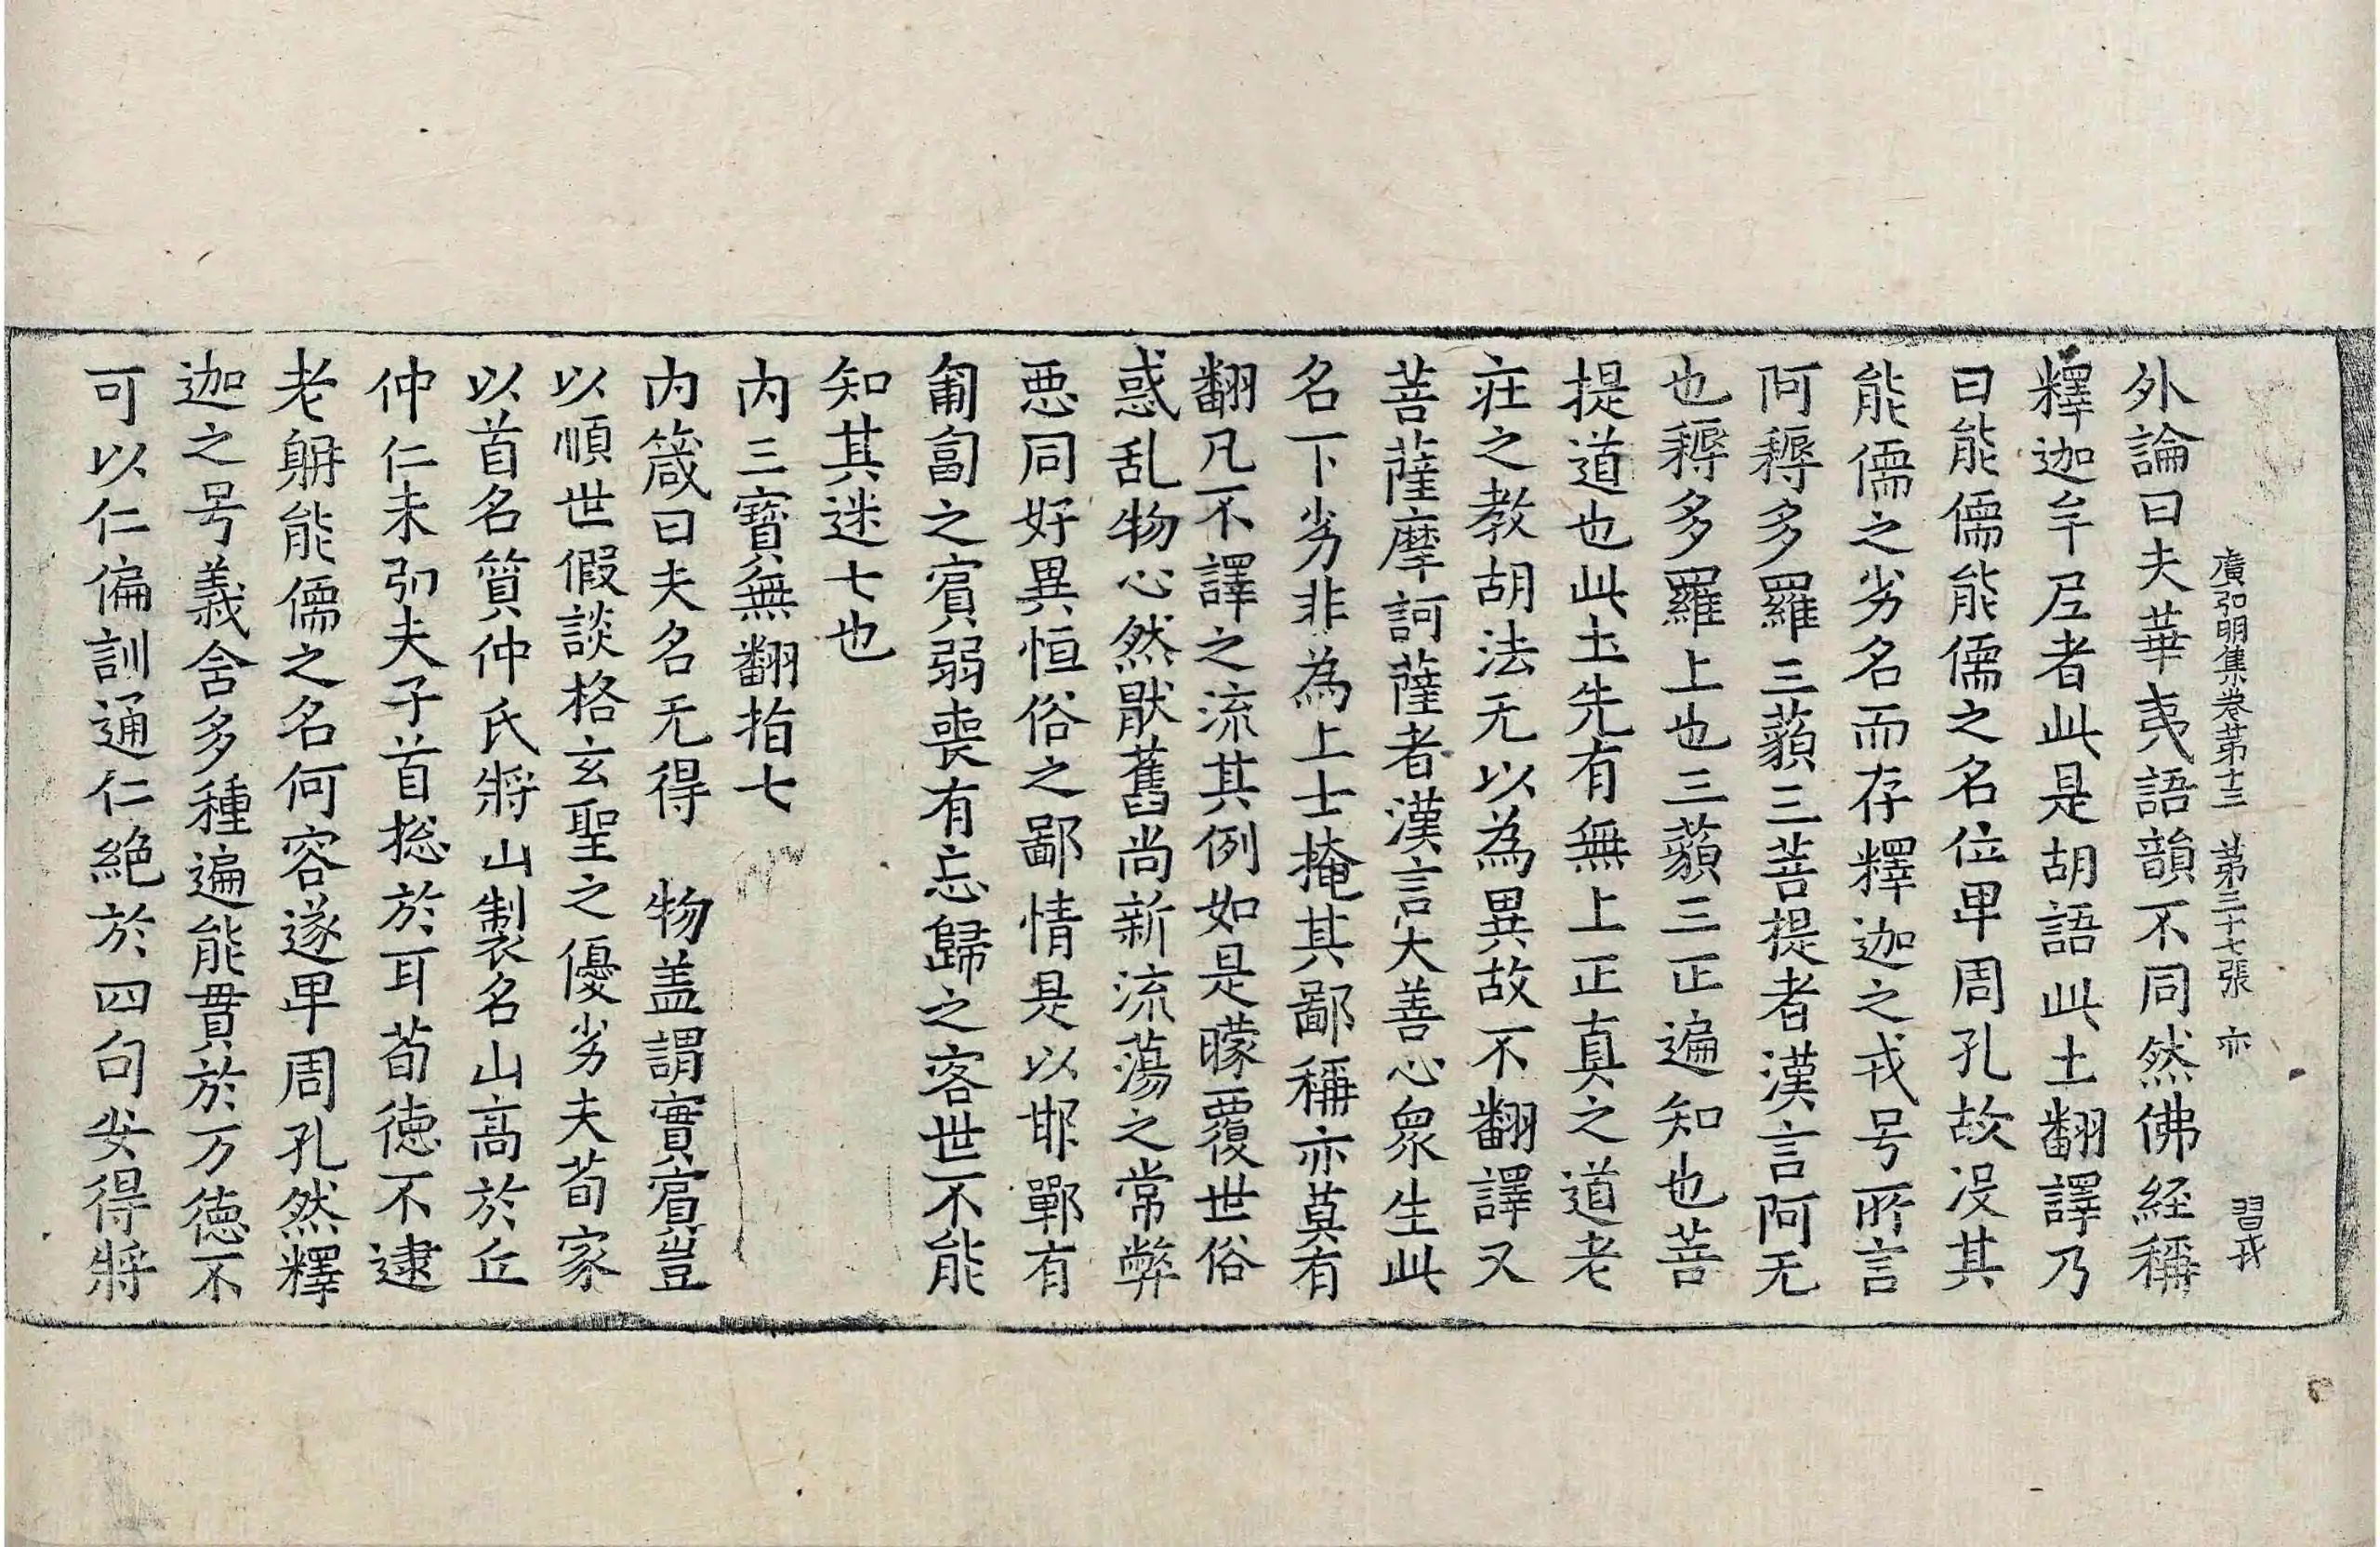 廣弘明集卷苐十三　苐三十七張　亦　習戎
外論曰夫華夷語韻不同然佛経稱
釋迦牟尼者此是胡語此土翻譯乃
曰能儒能儒之名位卑周孔故沒其
能儒之劣名而存釋迦之戎号所言
阿耨多羅三藐三菩提者漢言阿无
也耨多羅上也三藐三正遍知也菩
提道也此土先有無上正真之道老
莊之教胡法无以為異故不翻譯又
菩薩摩訶薩者漢言大善心衆生此
名下劣非為上士掩其鄙稱亦莫有
翻凡不譯之流其例如是矇覆世俗
惑乱物心然猒舊尚新流蕩之常弊
惡同好異恒俗之鄙情是以邯鄲有
匍匐之賓弱喪有忘歸之客世不能
知其迷七也
内三寶無翻指七
内箴曰夫名无得　物盖謂實賓豈
以順世假談格玄聖之優劣夫荀家
以首名質仲氏將山製名山高於丘
仲仁未弘夫子首捴於耳荀徳不逮
老躰能儒之名何容遂卑周孔然釋
迦之号義舍多種遍能貫於万徳不
可以仁偏訓通仁絶於四句安得將